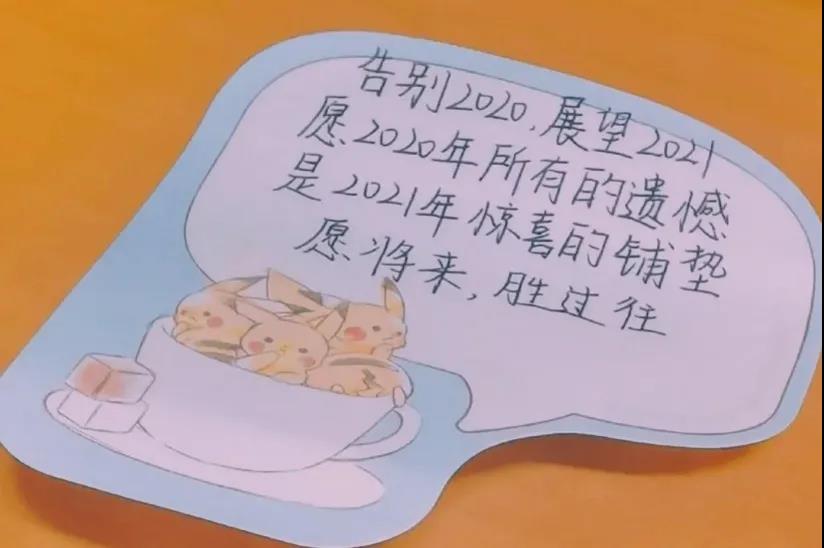 告别2020,展望2021
愿2020年所有的遗憾
是2021年惊喜的铺垫
愿将来,胜过往